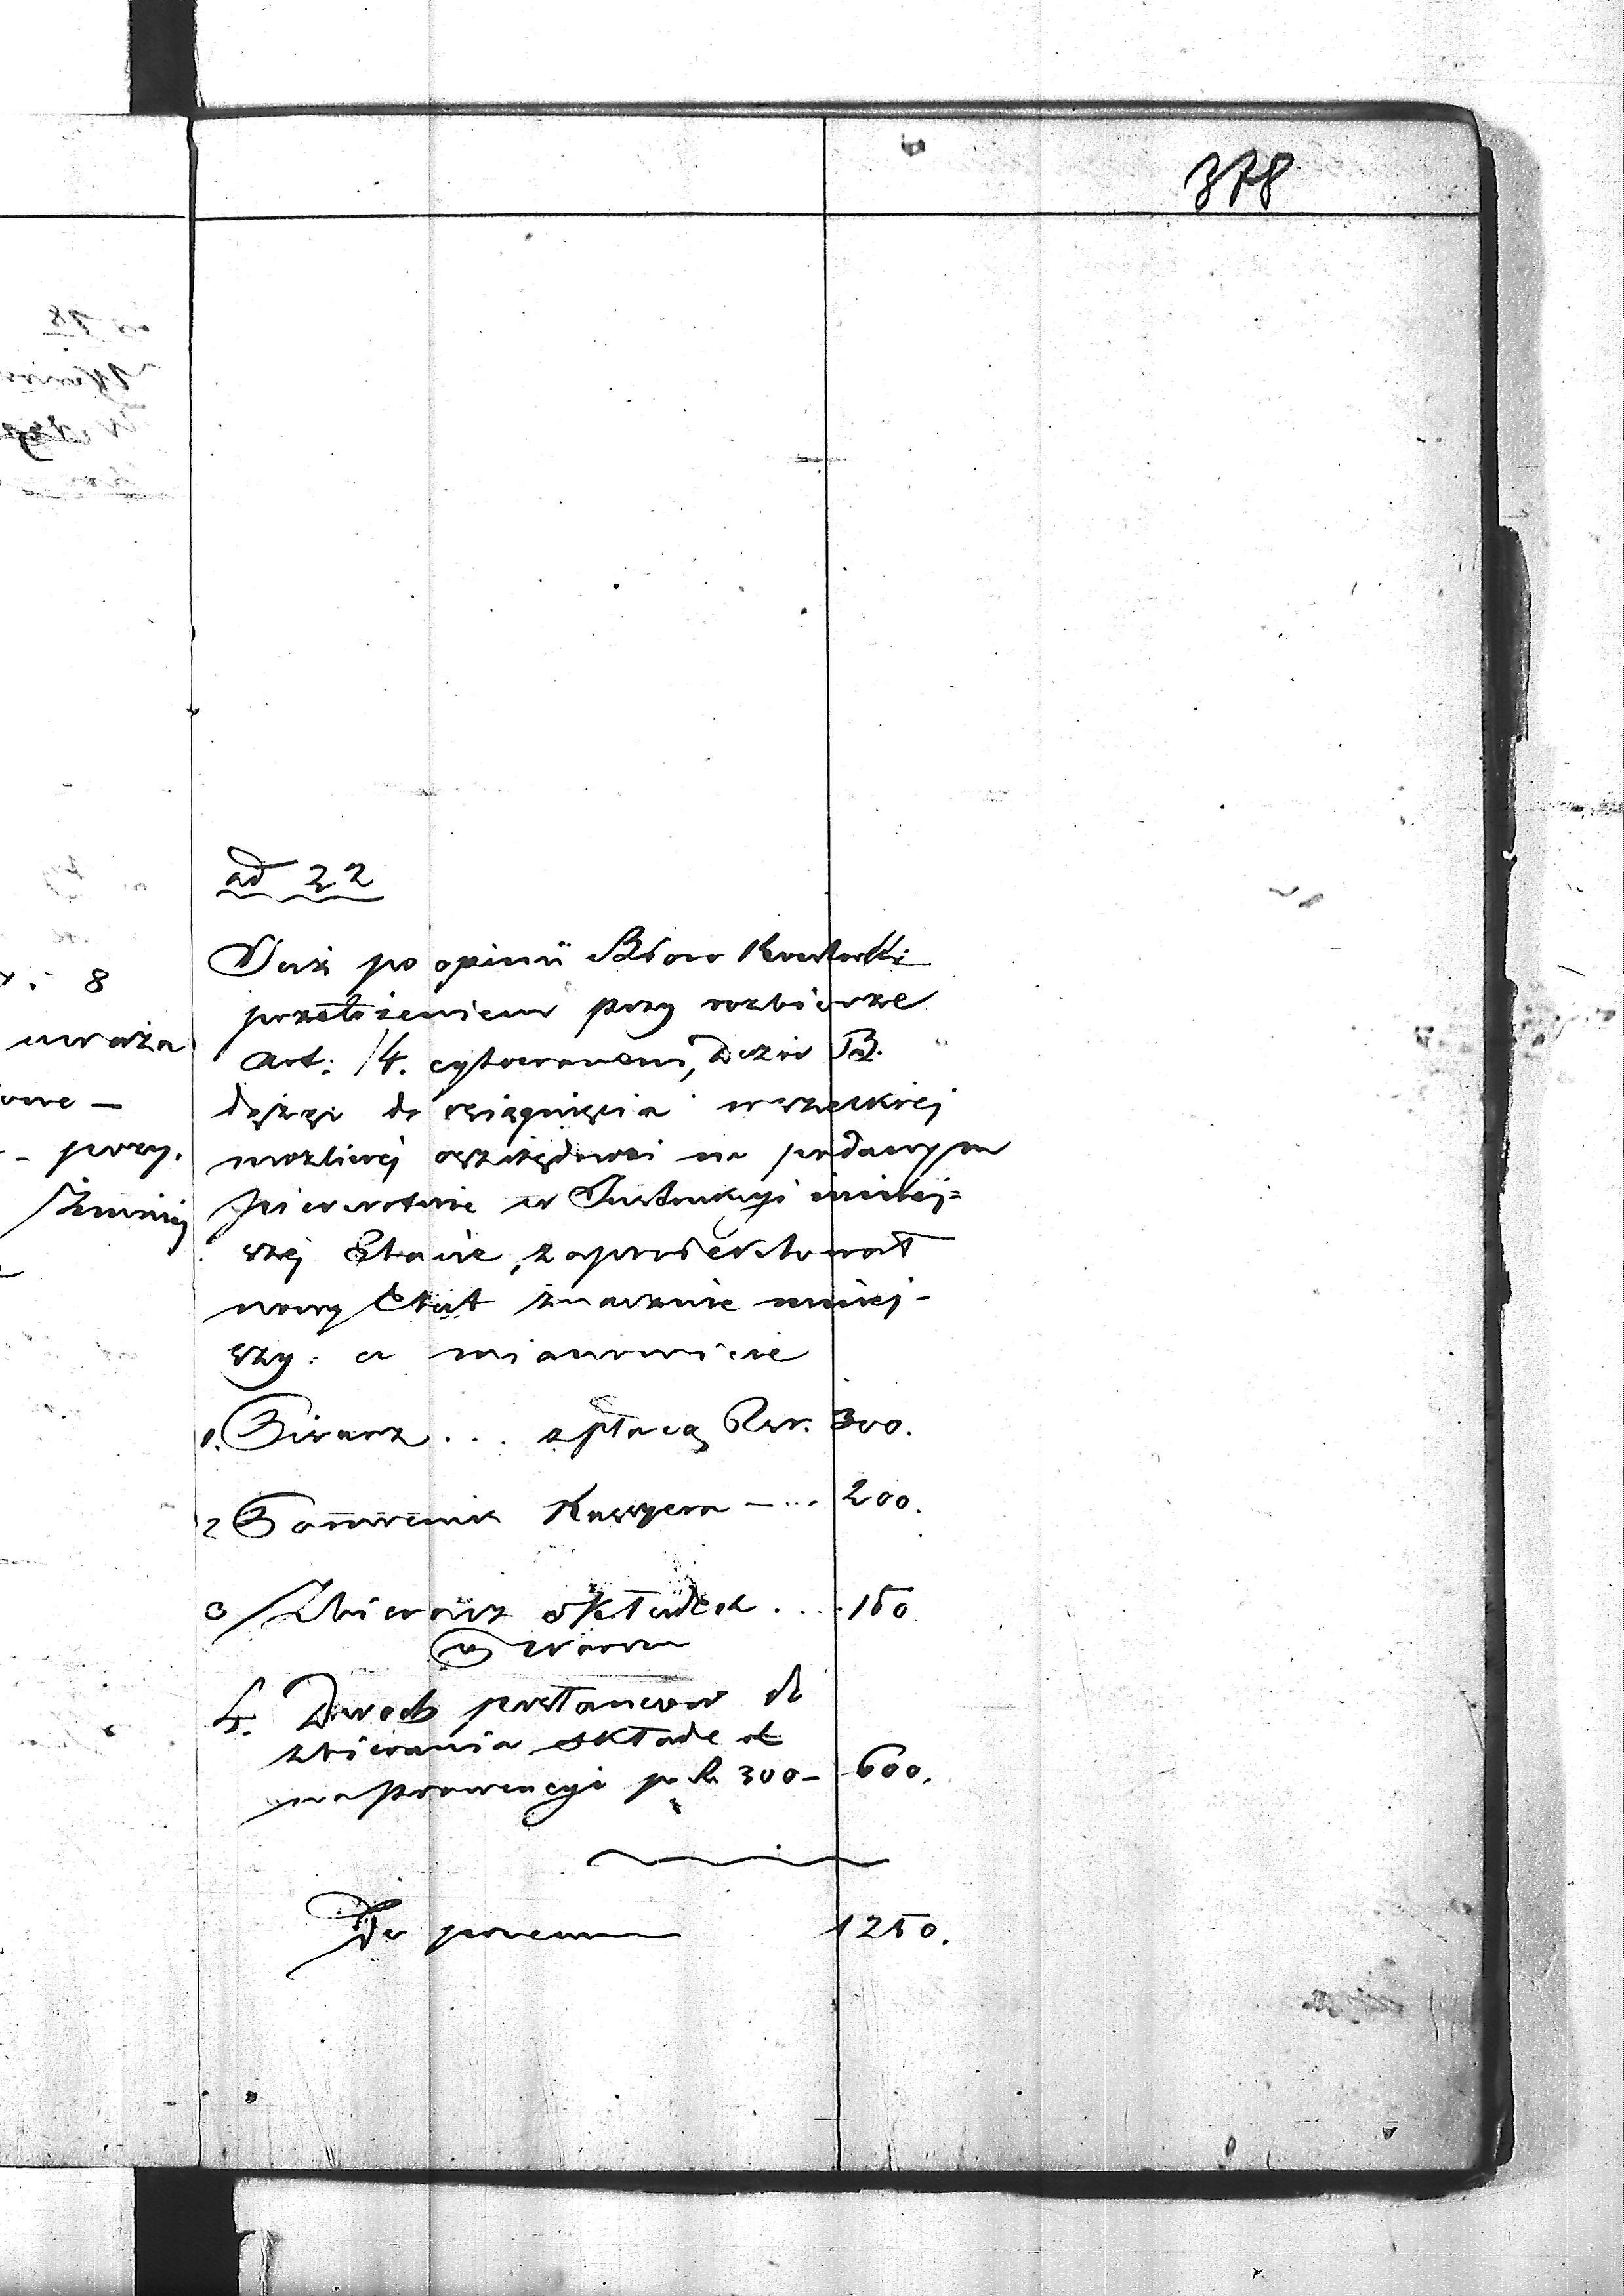 378
ad 22
Już po opinii Biura Kontroli
przełożeniem przy rozbiorze
Art: 14. cytowanem, Dozór B.
dążąc do osiągnięcia wszelkiej
możliwej oszczędności na podanym
pierwotnie w Instrukcyi niniej=
szej Etacie, zaprojektował
nowy Etat znacznie mniej-
szy: a mianowicie
1. Pisarz ... z płacą Rsr. 300.
2 Pomocnik Kassyera - ... 200.
3 Zbieracz składek .... 150
w Warsz
4. Dwóch posłańców do
zbierania składek
na prowincyi po Rs 300 - 600.
Do przen 1250.
8
uważa
przy.